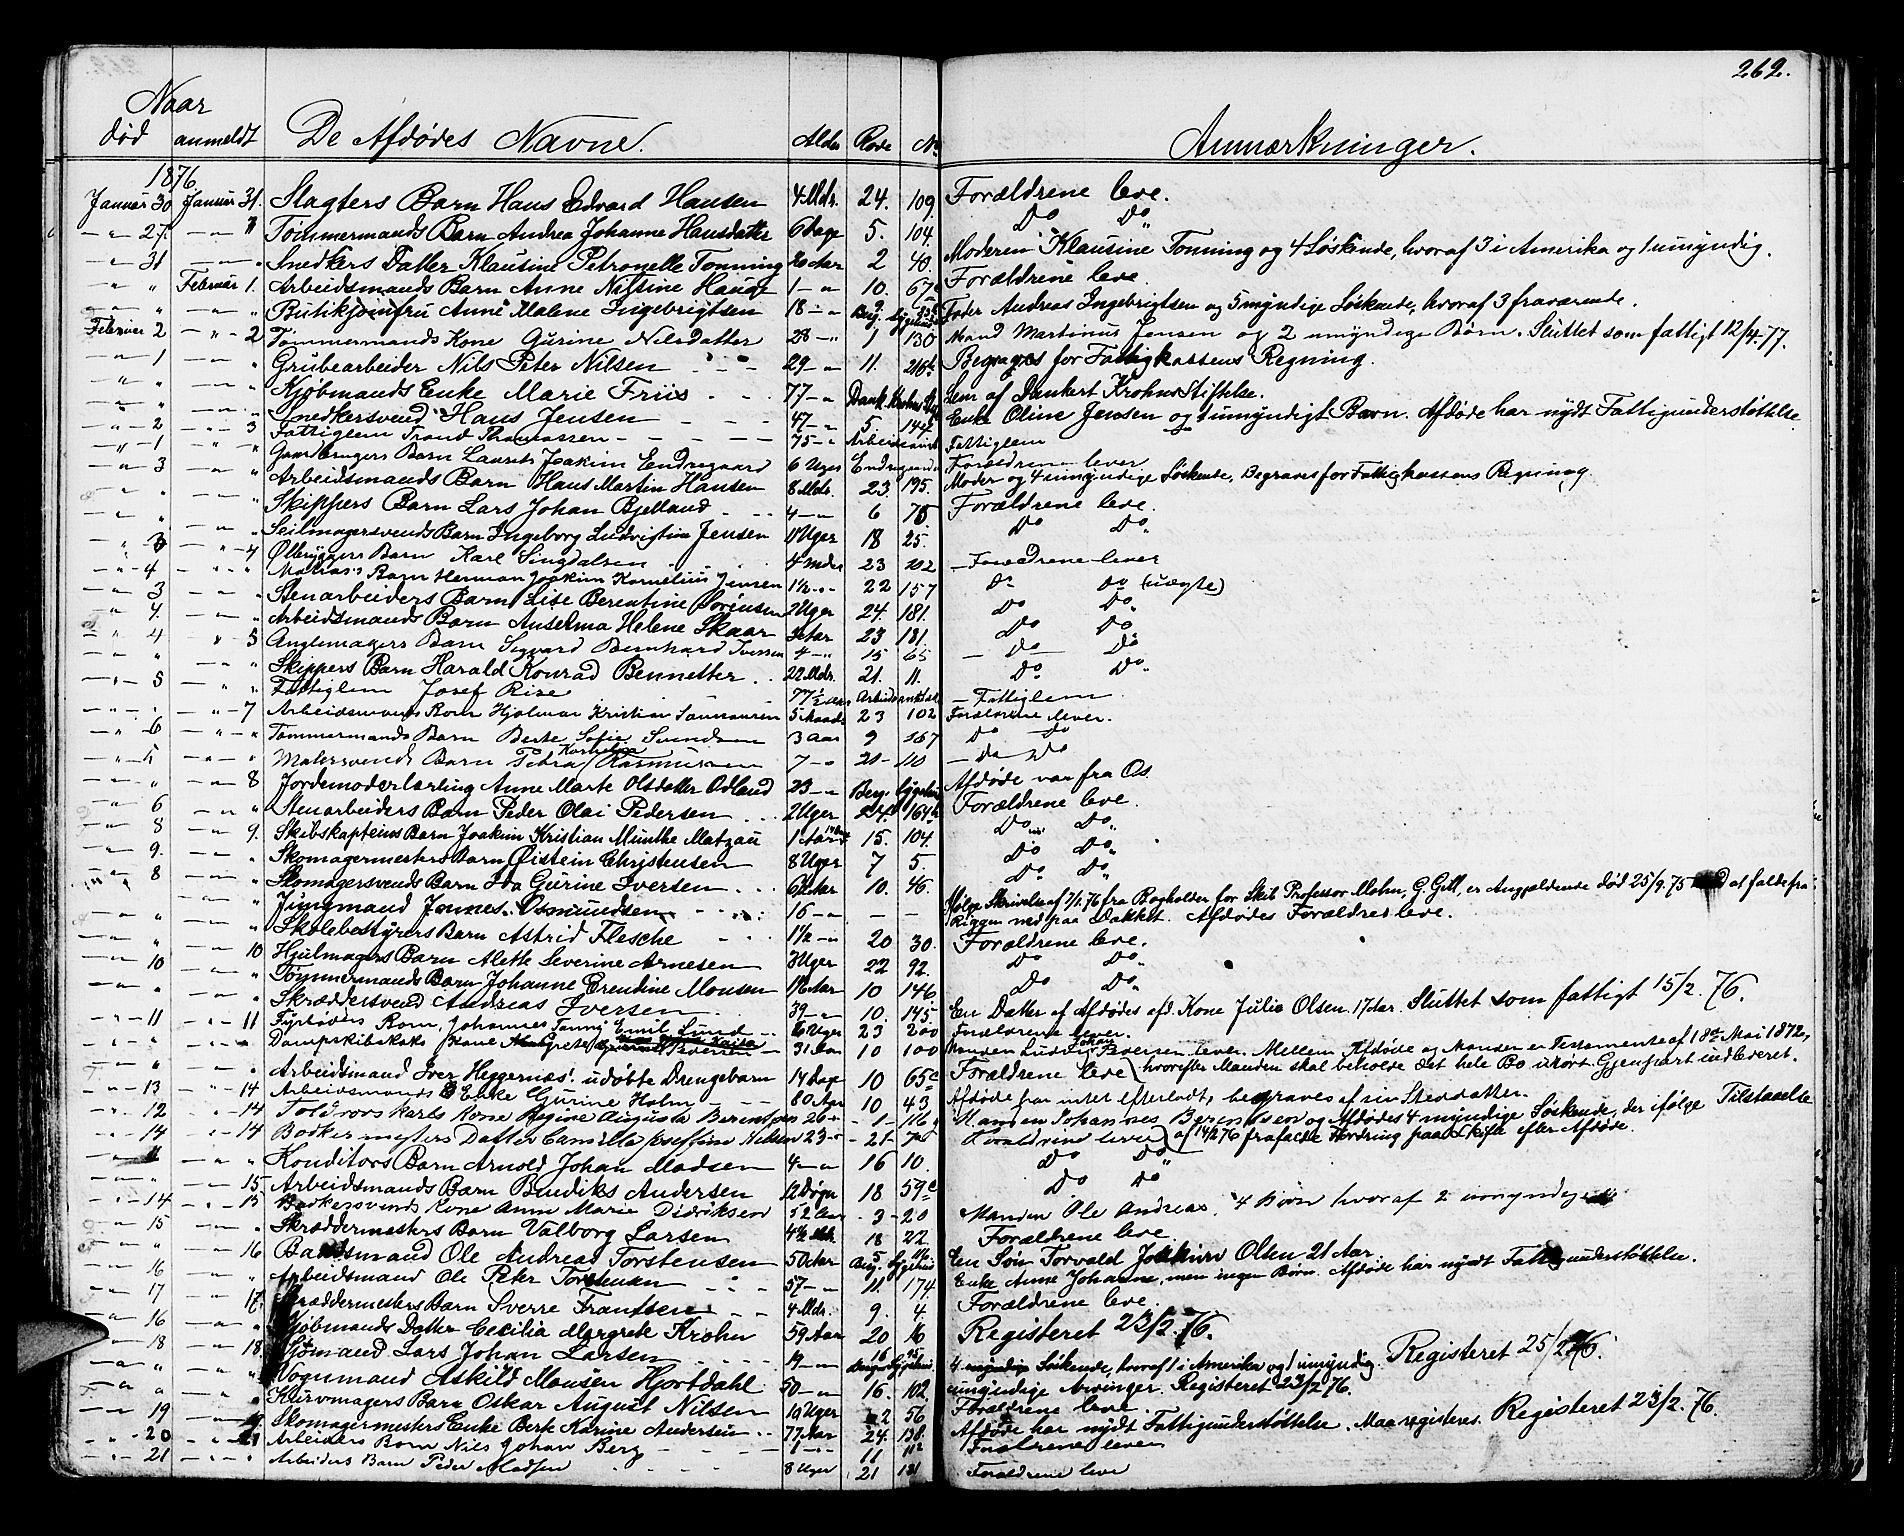 262.
Naar
død anmeldt De Afdødes Navne. Alder Rode No Anmærkninger.
1876.
Januar 30 Januar 31. Slagters Barn Hans Edvard Hansen 4 Mdr. 24. 109. Forældrene leve.
— " 27. — " — " Tømmermands Barn Andrea Johanne Hansdatter 6 Dage 5. 104. Do Do
— " 31 — " — " Snedkers Datter Klautine Petronelle Tonning 20 Aar 2 40. Moderen Klausine Tonning og 4 Søskende, hvoraf 3 i Amerika og 1 umyndig.
— " " Februar 1. Arbeidsmands Barn Anne Nilsine Hauge 1 — " 10. 67 Forældrene leve.
— " " — " — " Butikjomfru Anne Malene Ingebrigtsen 18 — " Berg. Sygehus Fader Andreas Ingebrigtsen og 5 myndige Søskende, hvoraf 3 fraværende.
Februar 2 — " — 2 Tømmermands Kone Gurine Nilsdatter 28 — " 1 130 Mand Martinus Jensen og 2 umyndige Børn. Sluttet som fattigt 12/4 77.
— " 1 — " — " Grubearbeider Nils Peter Nilsen 29 — " 11. Begraves for Fattigkassens Regning.
— " " — " — " Kjøbmands Enke Marie Friis 77 — " Dank. Krohns Lem af Dankert Krohns Stiftelse.
— " " — " — " Snedkersvend Hans Jensen 47 — " 5. 144 Enke Oline Jensen og 1 umyndigt Barn. Afdøde har nydt Fattigunderstøttelse
— " 2 — " 3 Fattiglem Trond Thomassen 75 — " Fattiglem
— " 1 — " — " Gaardbrugers Barn Laurits Joakim Endregaard 6 Uger Forældrene lever
— " 3 — " — " Arbeidsmands Barn Hans Martin Hansen 8 Mdr. 23. 195. Moder og 4 umyndige Søskende, Begraves for Fattigkassens Regning.
— " " — " — " Skippers Barn Lars Johan Bjelland 4 — " 6 78 Forældrene leve.
— " " — " — " Seilmagersvends Barn Ingeborg Ludvigtine Jensen 11 Uger 18 25. Do Do
— " 3 — " — 4 Ølbryggers Barn Karl Singdalsen 4 Mdr 23 202 — Forældrene lever
— " 4 — " — " Matros's Barn Herman Joakim Kornelius Jensen 1½ — " 22 157 Do Do (uægte)
— " 3 — " — " Stenarbeiders Barn Lise Berentine Sørensen 2 Uger 24. 181. Do Do
— " 4. — " — " Arbeidsmands Barn Anselma Helene Skaar 3 Aar 23 181. Do Do
— " 4 — " 5 Anglemagers Barn Sigvard Bernhard Iversen 4 — " 15 65 — Do Do
— " " — " — " Skippers Barn Harald Konrad Bennetter 22 Mdr. 21. 11. Do Do
— " 5 — " — " Fattiglem Josef Rise 77½ Aar — Fattiglem
— " " — " — 7 Arbeidsmands Barn Hjalmar Kristian 5 Maad 23 102 Forældrene lever.
— " 6 — " — " Tømmermands Barn Berte Sofie Svendsen 3 Aar 9 167 Do Do
— " 5 — " — " Malersvends Barn Petra Kornelia Rasmussen 7 — " 20 — 110 — Do Do
— " " — " 8 Jordemoderlærling Anne Marte Olsdatter Odland 23 — " Berg. Sygehus Afdøde var fra Os
— " 6 — " — " Stenarbeiders Barn Peder Olai Pedersen 2 Uger 24 164 Forældrene leve.
— " 8 — " 9. Skibskapteins Barn Joakim Kristian Munthe Matzau 1 Aar 15. 104. Do Do
— " 9. — " — " Skomagermesters Barn Øistein Christensen 8 Uger 7 5. Do Do
— " 8 — " — " Skomagersvends Barn Ida Gurine Iversen 6 Aar 10. 46. Do Do
— " " — " — " Jungmand Jonnes Osmundsen 16 — " — — Ifølge Skrivelse af 7/1 76 fra Bogholder for Skib Professor Mohn, G. Gill, er Angjældende død 25/9. 75 ved at falde fra
Riggen ned paa Dækket. Afdødes Forældre leve.
— " " — " — " Skolebestyrers Barn Astrid Flesche 1½ — " 20 30. Forældrene leve.
— " " — " 10 Hjulmagers Barn Alette Severine Arnesen 3 Uger 22 92. Do Do
— " 10 — " — " Tømmermands Barn Johanne Erendine Monsen 10 146. Do Do
— " " — " — " Skræddersvend Andreas Iversen 39 — " 10. 145 En Datter af Afdødes afd. Kone Julia Olsen 17 Aar. Sluttet som fattigt 15/2. 76.
— " 11 — " 11 Fyrbøders Barn, Johannes Emil Lund 6 Uger 23 200 Forældrene lever.
— " " — " — " Dampskibskoks Kone Grete Iversen 31 Aar 10 100 Manden Ludvig Johan Iversen lever. Mellem Afdøde og Manden er Testamente af 18de Mai 1872,
— " " — " — " Arbeidsmand Iver Heggernæs' udøbte Drengebarn 14 Dage 10 65c Forældrene leve hvorefter Manden skal beholde det hele Bo urørt. Gjenpart indleveret.
— " 13 — " — 14 Arbeidsmands Enke Gurine Holm 80 Aar 10 43 Afdøde har intet efterladt, begraves af sin Steddatter.
— " 12 — " — 14 Toldrorskarls Kone Regine Augusta Berentsen 26 — " — 1 — 116 Manden Johannes Berentsen og Afdødes 4 myndige Søskende, der ifølge Tilstaaelse
— " 14 — " — 14 Bødkermesters Datter Camilla Josefine Nilsen 23 — " — 21 — Forældrene lever af 14/2 76 frafaldt Fordring paa Skifte efter Afdøde.
— " 11 — " — " Konditors Barn Arnold Johan Madsen 4 — " 16 10. Do Do
— " " — " 15 Arbeidsmands Barn Bendiks Andersen 12 Døgn 18 59c Do Do
— " 14 — " 15 Bødkersvends Kone Anne Marie Didriksen 52 Aar 3 — 20 Manden Ole Andreas, 4 Børn hvoraf 2 umyndige
— " 15 — " — " Skræddermesters Barn Valborg Larsen 4½ Mdr. 18 22 Forældrene leve.
— " " — " 16 Baadsmand Ole Andreas Torstensen 50 Aar Berg. Sygehus En Søn Torvald Joakim Olsen 21 Aar.
— " 16 — " — " Arbeidsmand Ole Peter Torstensen 57 — " 11. 174. Enke Anne Johanne, men ingen Børn. Afdøde har nydt Fattigunderstøttelse.
— " 17 — " 17. Skræddermesters Barn Sverre Frantsen 4 Mdr. 9. 4 Forældrene leve.
— " 16 — " — " Kjøbmands Datter Cecilia Margrete Krohn 59 Aar 20 16 Registeret 23/2. 76.
— " 18 — " 18. Sjømand Lars Johan Larsen 19 — " Berg. Sygehus 4 myndige Søskende, hvoraf 1 i Amerika og 1 umyndig. Registeret 25/2 76.
— " " — " — " Vognmand Askild Monsen Hjortdahl 50 — " 16. 102 umyndige Arvinger. Registeret 23/2 76.
— " " — " — " Kurvmagers Barn Oskar August Nilsen 19 Uger 2 56 Forældrene leve.
— " 19 — " — Skomagermesters Enke Berte Karine Andersen 77 Aar 24. 138. Afdøde har nydt Fattigunderstøttelse. Maa registeres. Registeret 23/2. 76.
— " 20 — " 21 Arbeiders Barn Nils Johan Berg 1 — " 11 Forældrene lever
— " 21 — " — " Arbeiders Barn Peder Madsen 8 Uger 21 131 Forældrene leve